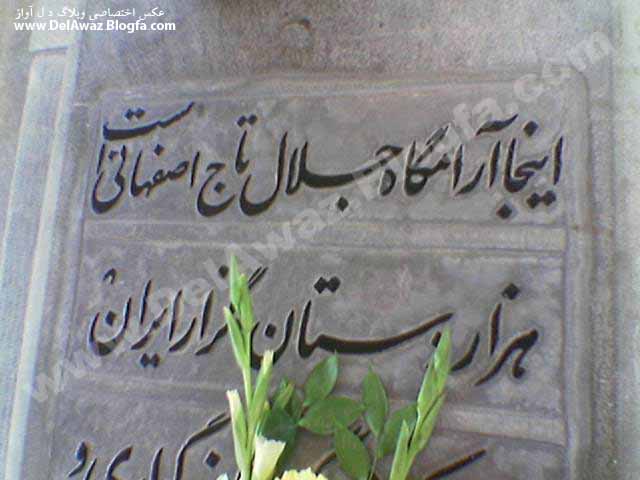 عکس اختصاصی وبلاگ دل آواز
www.DelAwaz.Blogfa.com
اینجا آرامگاه جلال تاج اصفهانی است
هزاردستان گلزار ایران